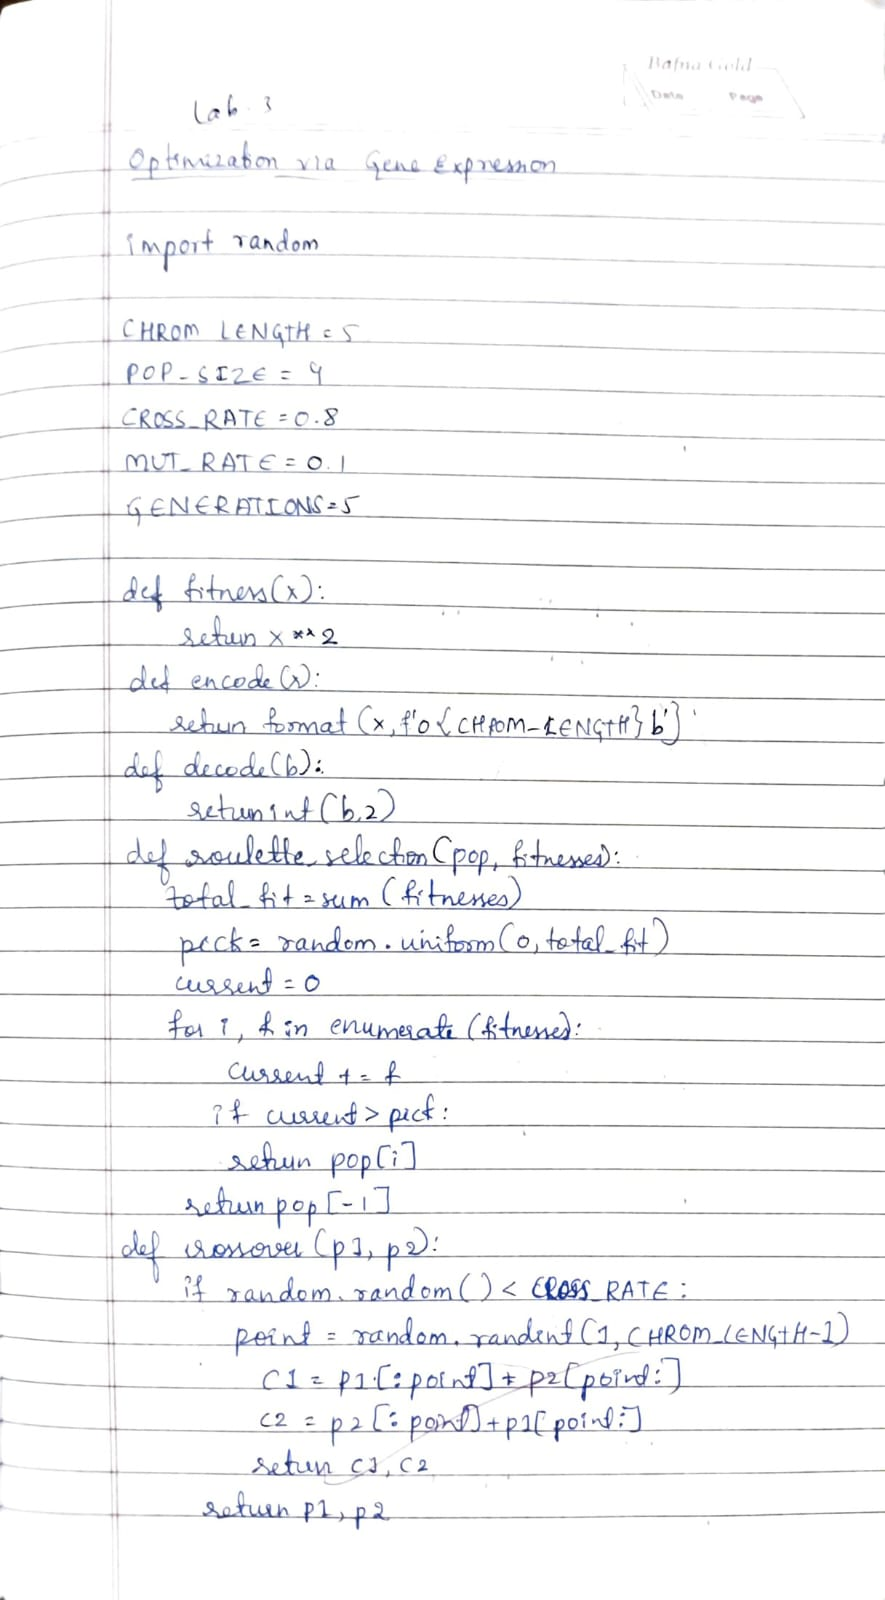 Bafna Gold
Date Page
Lab 3
Optimization via Gene Expression
import random
CHROM LENGTH = 5
POP_SIZE = 4
CROSS_RATE = 0.8
MUT_RATE = 0.1
GENERATIONS = 5
def fitness(x):
return x **2
def encode(x):
return format (x, f'0{CHROM_LENGTH}b'}
def decode(b):
return int (b,2)
def roulette_selection (pop, fitnesses):
total_fit = sum (fitnesses)
pick = random.uniform(0, total_fit)
current = 0
for i, f in enumerate (fitnesses):
current += f
if current > pick:
return pop[i]
return pop [-1]
def crossover (p1, p2):
if random.random() < CROSS_RATE:
point = random.randint (1, CHROM_LENGTH-1)
C1 = p1[:point] + p2[point:]
C2 = p2[:point]+p1[point:]
return c1, c2
return p1, p2